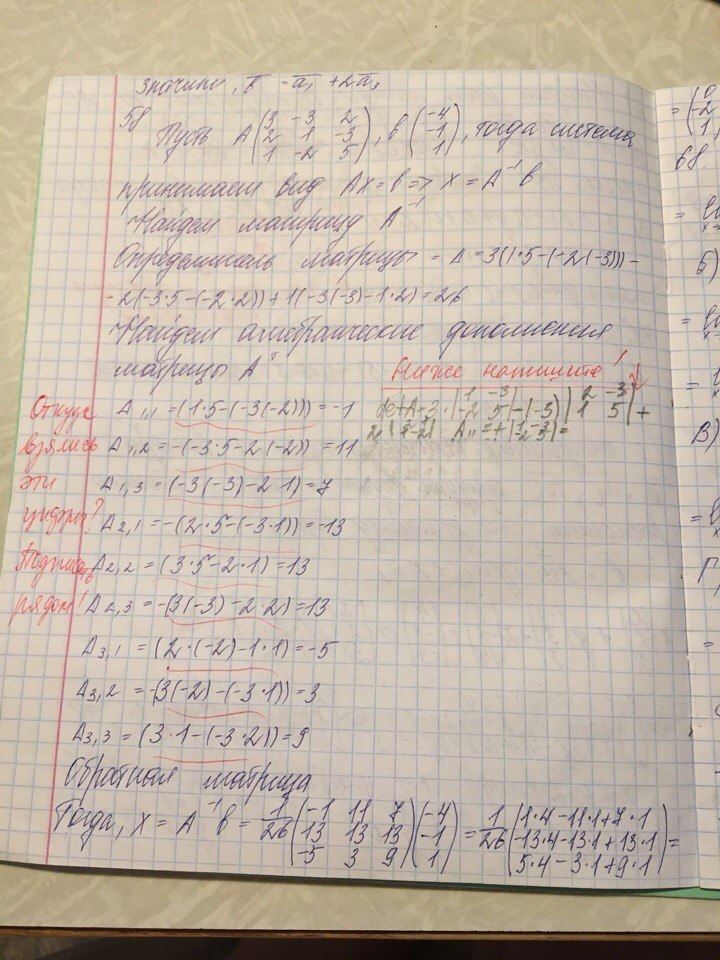 Значит, в = a₁ + 2a₃
5б
Пусть A (3 -3 2
2 1 -3
1 -2 5), в (-4
-1
1), тогда система
принимает вид Ax=в => x = A⁻¹ в
Найдем матрицу A⁻¹
Определитель матрицы = A = 3(1·5-(-2(-3))) -
-2(-3·5-(-2·2))+1(-3(-3)-1·2)=26
Найдем алгебраические дополнения
матрицы A
Ниже напишите!
Откуда взялись эти цифры? Подписать рядом!
detA=3·|1 -3
-2 5|-(-3)|2 -3
1 5|+
2|2 1
1 -2| A₁₁=+|1 -3
-2 5|=
A1,1 =(1·5-(-3(-2)))=-1
A1,2 =-(-3·5-2(-2))=11
A1,3 =(-3(-3)-2·1)=7
A2,1 =-(2·5-(-3·1))=-13
A2,2 =(3·5-2·1)=13
A2,3 =-(3(-3)-2·2)=13
A3,1 =(2·(-2)-1·1)=-5
A3,2 =-(3(-2)-(-3·1))=3
A3,3 =(3·1-(-3·2))=9
Обратная матрица
Тогда, x = A⁻¹ в = 1/26 (-1 11 7
13 13 13
-5 3 9)(-4
-1
1) = 1/26 (1·4-11·1+7·1
-13·4-13·1+13·1
5·4-3·1+9·1)=
=(0
-2
1)
6в.
=
б)
=
=
в)
=